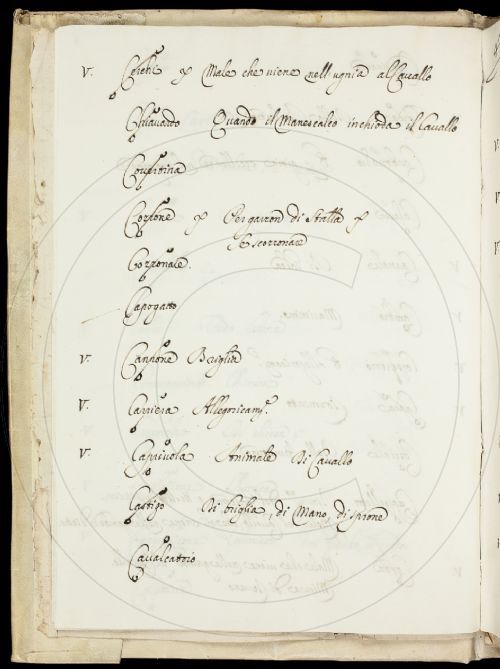 V. Chiehi p Male che viene nell ugnia al Cavallo
Chiavardo Quando il Manescalco inchioda il Cavallo
Covertina
Corsone p Per garzon di Stalla p
Corzonare.
Capogatto
V. Canzone Briglia
V. Carriera Allegoricam.e
V. Capriola Animale Di Cavallo
Castigo Di briglia, di Mano, di sprone
Cavalcatoio